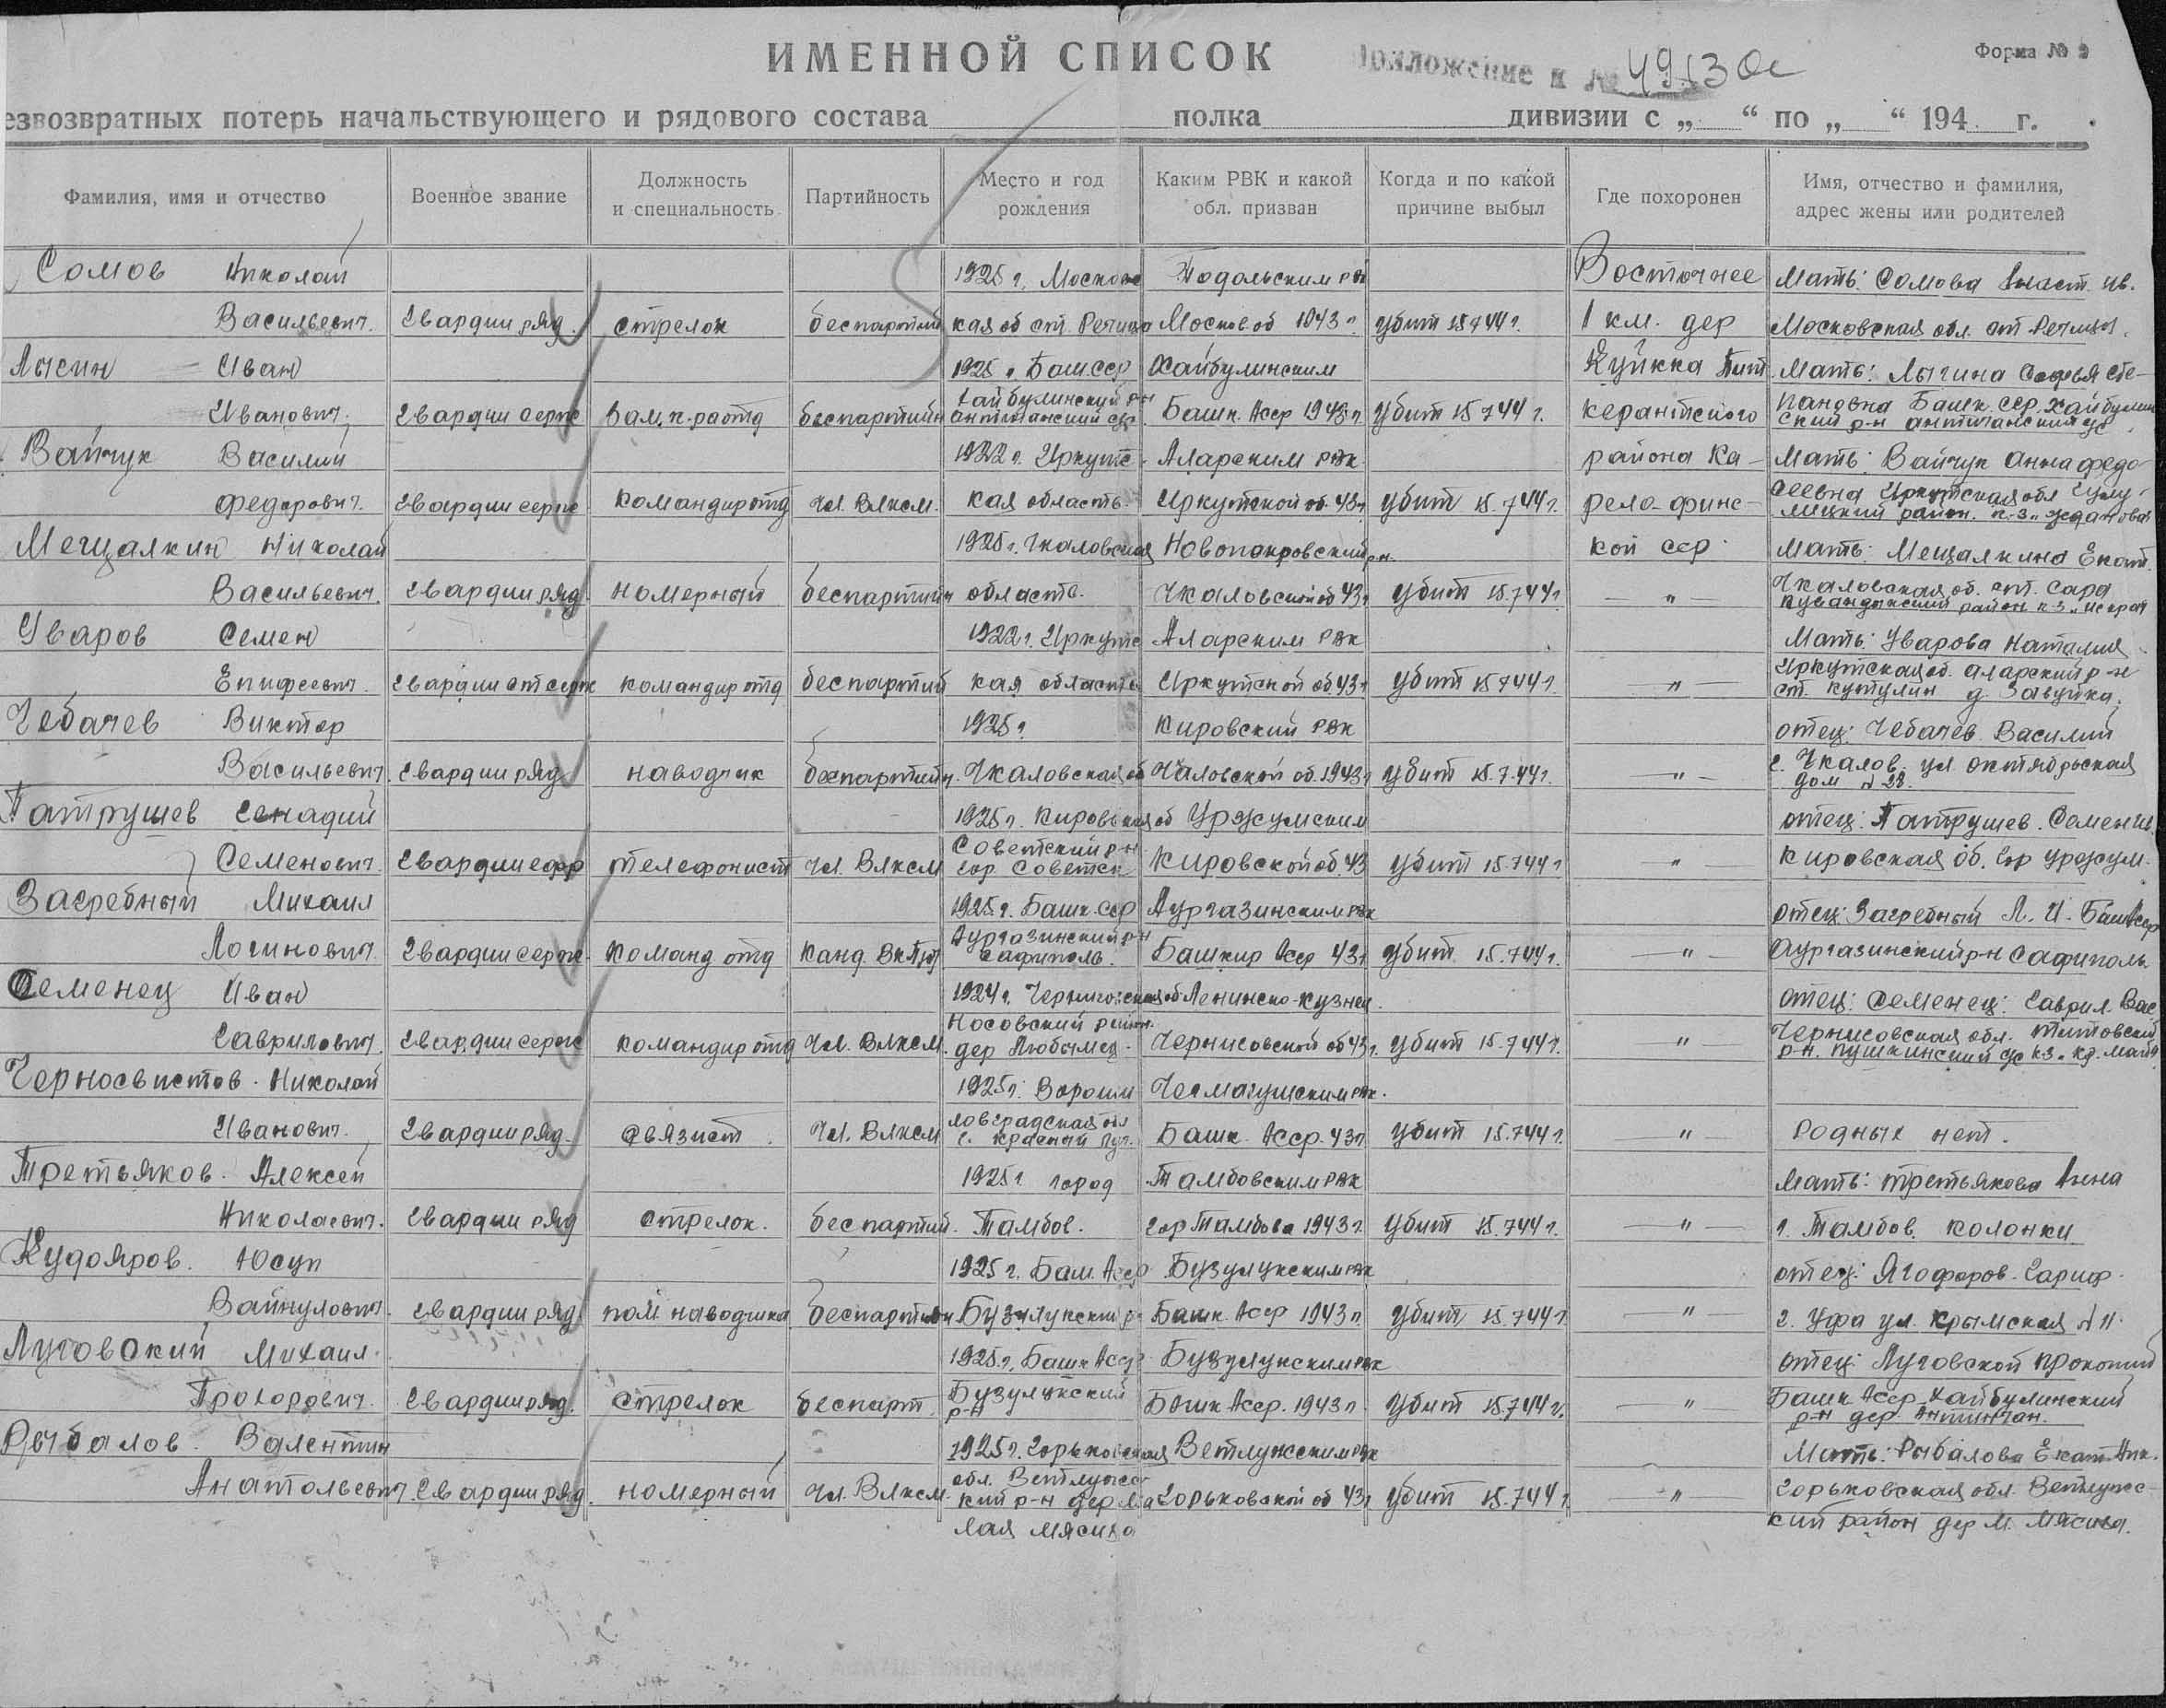 ИМЕННОЙ СПИСОК
Приложение к № 4913 Ос
Форма № 9
езвозвратных потерь начальствующего и рядового состава полка дивизии с „ “ по „ “ 194 г.
Фамилия, имя и отчество Военное звание Должность и специальность Партийность Место и год рождения Каким РВК и какой обл. призван Когда и по какой причине выбыл Где похоронен Имя, отчество и фамилия, адрес жены или родителей
Сомов Николай 1925 г. Москов Подольским РВК Восточнее Мать: Сомова Анаст. Ив.
Васильевич. Гвардии ряд. стрелок беспартий кая об ст. Москов об 1943 г. убит 15 7 44 г. 1 км. дер Московская обл. ст.
Лысин Иван 1925 г. Баш.сср Хайбулинским Куйкка Пит Мать: Софья Сте-
Иванович. Гвардии серж Зам. к-ра отд беспартийн Хайбулинский р-н Башк. Асср 1943 г. убит 15 7 44 г. керантского пановна Башк. сср. Хайбулин
ский р-н
Вайчук Василий 1922 г. Иркутс Аларским РВК района Ка- Мать: Вайчук Анна федо-
федорович. Гвардии серж командир отд Чл. Влксм. кая область. Иркутской об. 43 г. убит 15.7 44 г. рело-финс- Иркутская обл
район. к-з „
Мещалкин Николай 1925 г. Чкаловская Новопокровский р-н. кой сср. Мать: Мещалкина Екат.
Васильевич. Гвардии ряд номерный беспартийн область. Чкаловской об 43 г убит 15.7 44 г. — „ — Чкаловская об. ст. Сара
Кувандыкский район к-з „Искра“
Уваров Семен 1922 г. Иркутс Аларским РВК Мать: Уварова Наталия
Епифеевич. Гвардии ст серж командир отд беспартий кая область Иркутской об 43 г убит 15 7 44 г. — „ — Иркутская об. Аларский р-н
ст. Кутулик д. Завушка.
Чебачев Виктор 1925 г. Кировский РВК отец: Чебачев Василий
Васильевич. Гвардии ряд наводчик беспартийн. Чкаловская об Чкаловской об. 1943 г убит 15.7.44 г. — „ — г. Чкалов. ул Октябрьская
дом № 28.
Патрушев Генадий 1925 г. Кировская об Уржумским отец: Патрушев. Семен Ив.
Семенович. Гвардии ефр телефонист Чл. Влксм Советский р-н гор Советск Кировской об. 43 убит 15.7 44 г — „ — Кировская об. гор Уржум.
Загребный Михаил 1925 г. Башк. сср Аургазинским РВК отец: Загребный Л. И. Баш Асср
Логинович. Гвардии серж. Команд отд Канд. ВКП(б) Аургазинский р-н Сафиполь. Башкир Асср 43 г убит 15.7 44 г. — „ — Аургазинский р-н Сафиполь
Семенец Иван 1924 г. Черниговская об Ленинско-Кузнец. отец: Семенец: Гаврил Вас
Гаврилович. Гвардии серж командир отд Чл. Влксм. Носовский район. дер Черниговской об 43 г. убит 15.7 44 г. — „ — Черниговская обл. Титовский
р-н. Пушкинский с/с к-з. Кр. Маяк
Черносвистов. Николай 1925 г. Вороши РВК.
Иванович. Гвардии ряд. связист. Чл. Влксм ловградская обл г. Красный Луч. Башк. Асср. 43 г убит 15.7 44 г. — „ — Родных нет.
Третьяков. Алексей 1925 г город Тамбовским РВК Мать: Третьякова Анна
Николаевич. Гвардии ряд стрелок. беспартий. Тамбов. гор Тамбова 1943 г. убит 15.7 44 г. — „ — г. Тамбов. колонки
Кудояров. Юсуп 1925 г. Баш. Асср Бузулукским РВК отец: Ягофаров. Гариф.
Вайнулович. Гвардии ряд пом. наводчика беспартийн Бузулукский р Башк. Асср 1943 г убит 15.7 44 г — „ — г. Уфа ул. Крымская № 11.
Луговский Михаил 1925 г. Башк Асср Бузулукским РВК отец: Луговской Прокопий
Прохорович. Гвардии ряд. стрелок беспарт. Бузулукский р-н Башк Асср. 1943 г. убит 15.7 44 г. — „ — Башк Асср. Хайбулинский
р-н дер
Рыбалов. Валентин 1925 г. Горьковская Ветлужским РВК Мать: Рыбалова Екат. Ник.
Анатольевич. Гвардии ряд. номерный Чл. Влксм. обл. Ветлужс кий р-н дер Ма Горьковской об 43 г убит 15.7 44 г — „ — Горьковская обл. Ветлужс-
лая Мясиха кий район дер М. Мясиха.